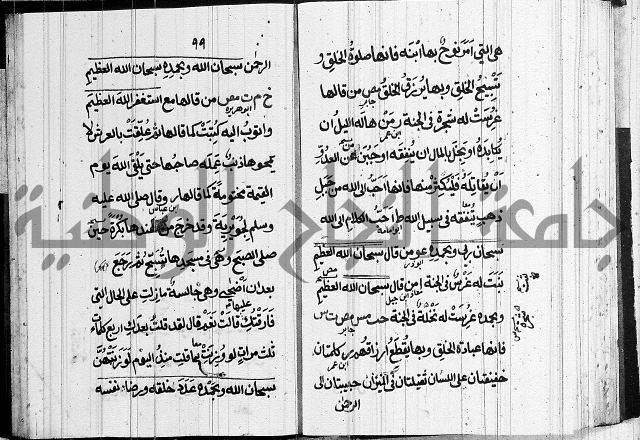 هى التى امر نوح بها ابنه فانها صلوة الخلق و
تسبيح الخلق وبها يرزق الخلق مص من قالها
جابر
غرست له شجرة فى الجنة ر من هاله الليل ان
ابن عمر
يكابده او بخل بالمال ان ينفقه او جبن عن العدو
ان يقاتله فليكثر منها فانها احب الى الله من جبل
ذهب تنفقه فى سبيل الله ط احب الكلام الى الله
ابو امامة
سبحان ربى وبحمده عو من قال سبحان الله العظيم
ابو ذر
نبتت له غرس فى الجنة ا من قال سبحان الله العظيم
معاذ ابن جبل
وبحمده غرست له نخلة فى الجنة حب مس مص ت س
جابر
فانها عبادة الخلق وبها تقطع ارزاقهم ر كلمتان
ابن عمر
خفيفتان على اللسان ثقيلتان فى الميزان حبيبتان الى
الرحمن
٩٩
الرحمن سبحان الله وبحمده سبحان الله العظيم
خ م ت مص من قالها مع استغفر الله العظيم
ابو هريرة
واتوب اليه كتبت كما قالها ثم علقت بالعرش لا
يمحوها ذنب عمله صاحبها حتى يلقى الله يوم
القيمة مختومة كما قالها ر وقال صلى الله عليه
ابن عباس
وسلم لجويرية وقد خرج من عندها بكرة حين
صلى الصبح وهى فى مسجدها تسبح ثم رجع
بعد ان اضحى وهى جالسة ما زلت على الحال التى
فارقتك عليها قالت نعم قال لقد قلت بعدك اربع كلمات
ثلث مرات لو وزنت بما قلت منذ اليوم لوزنتهن
سبحان الله وبحمده عدد خلقه ورضا نفسه
جامعة النجاح الوطنية